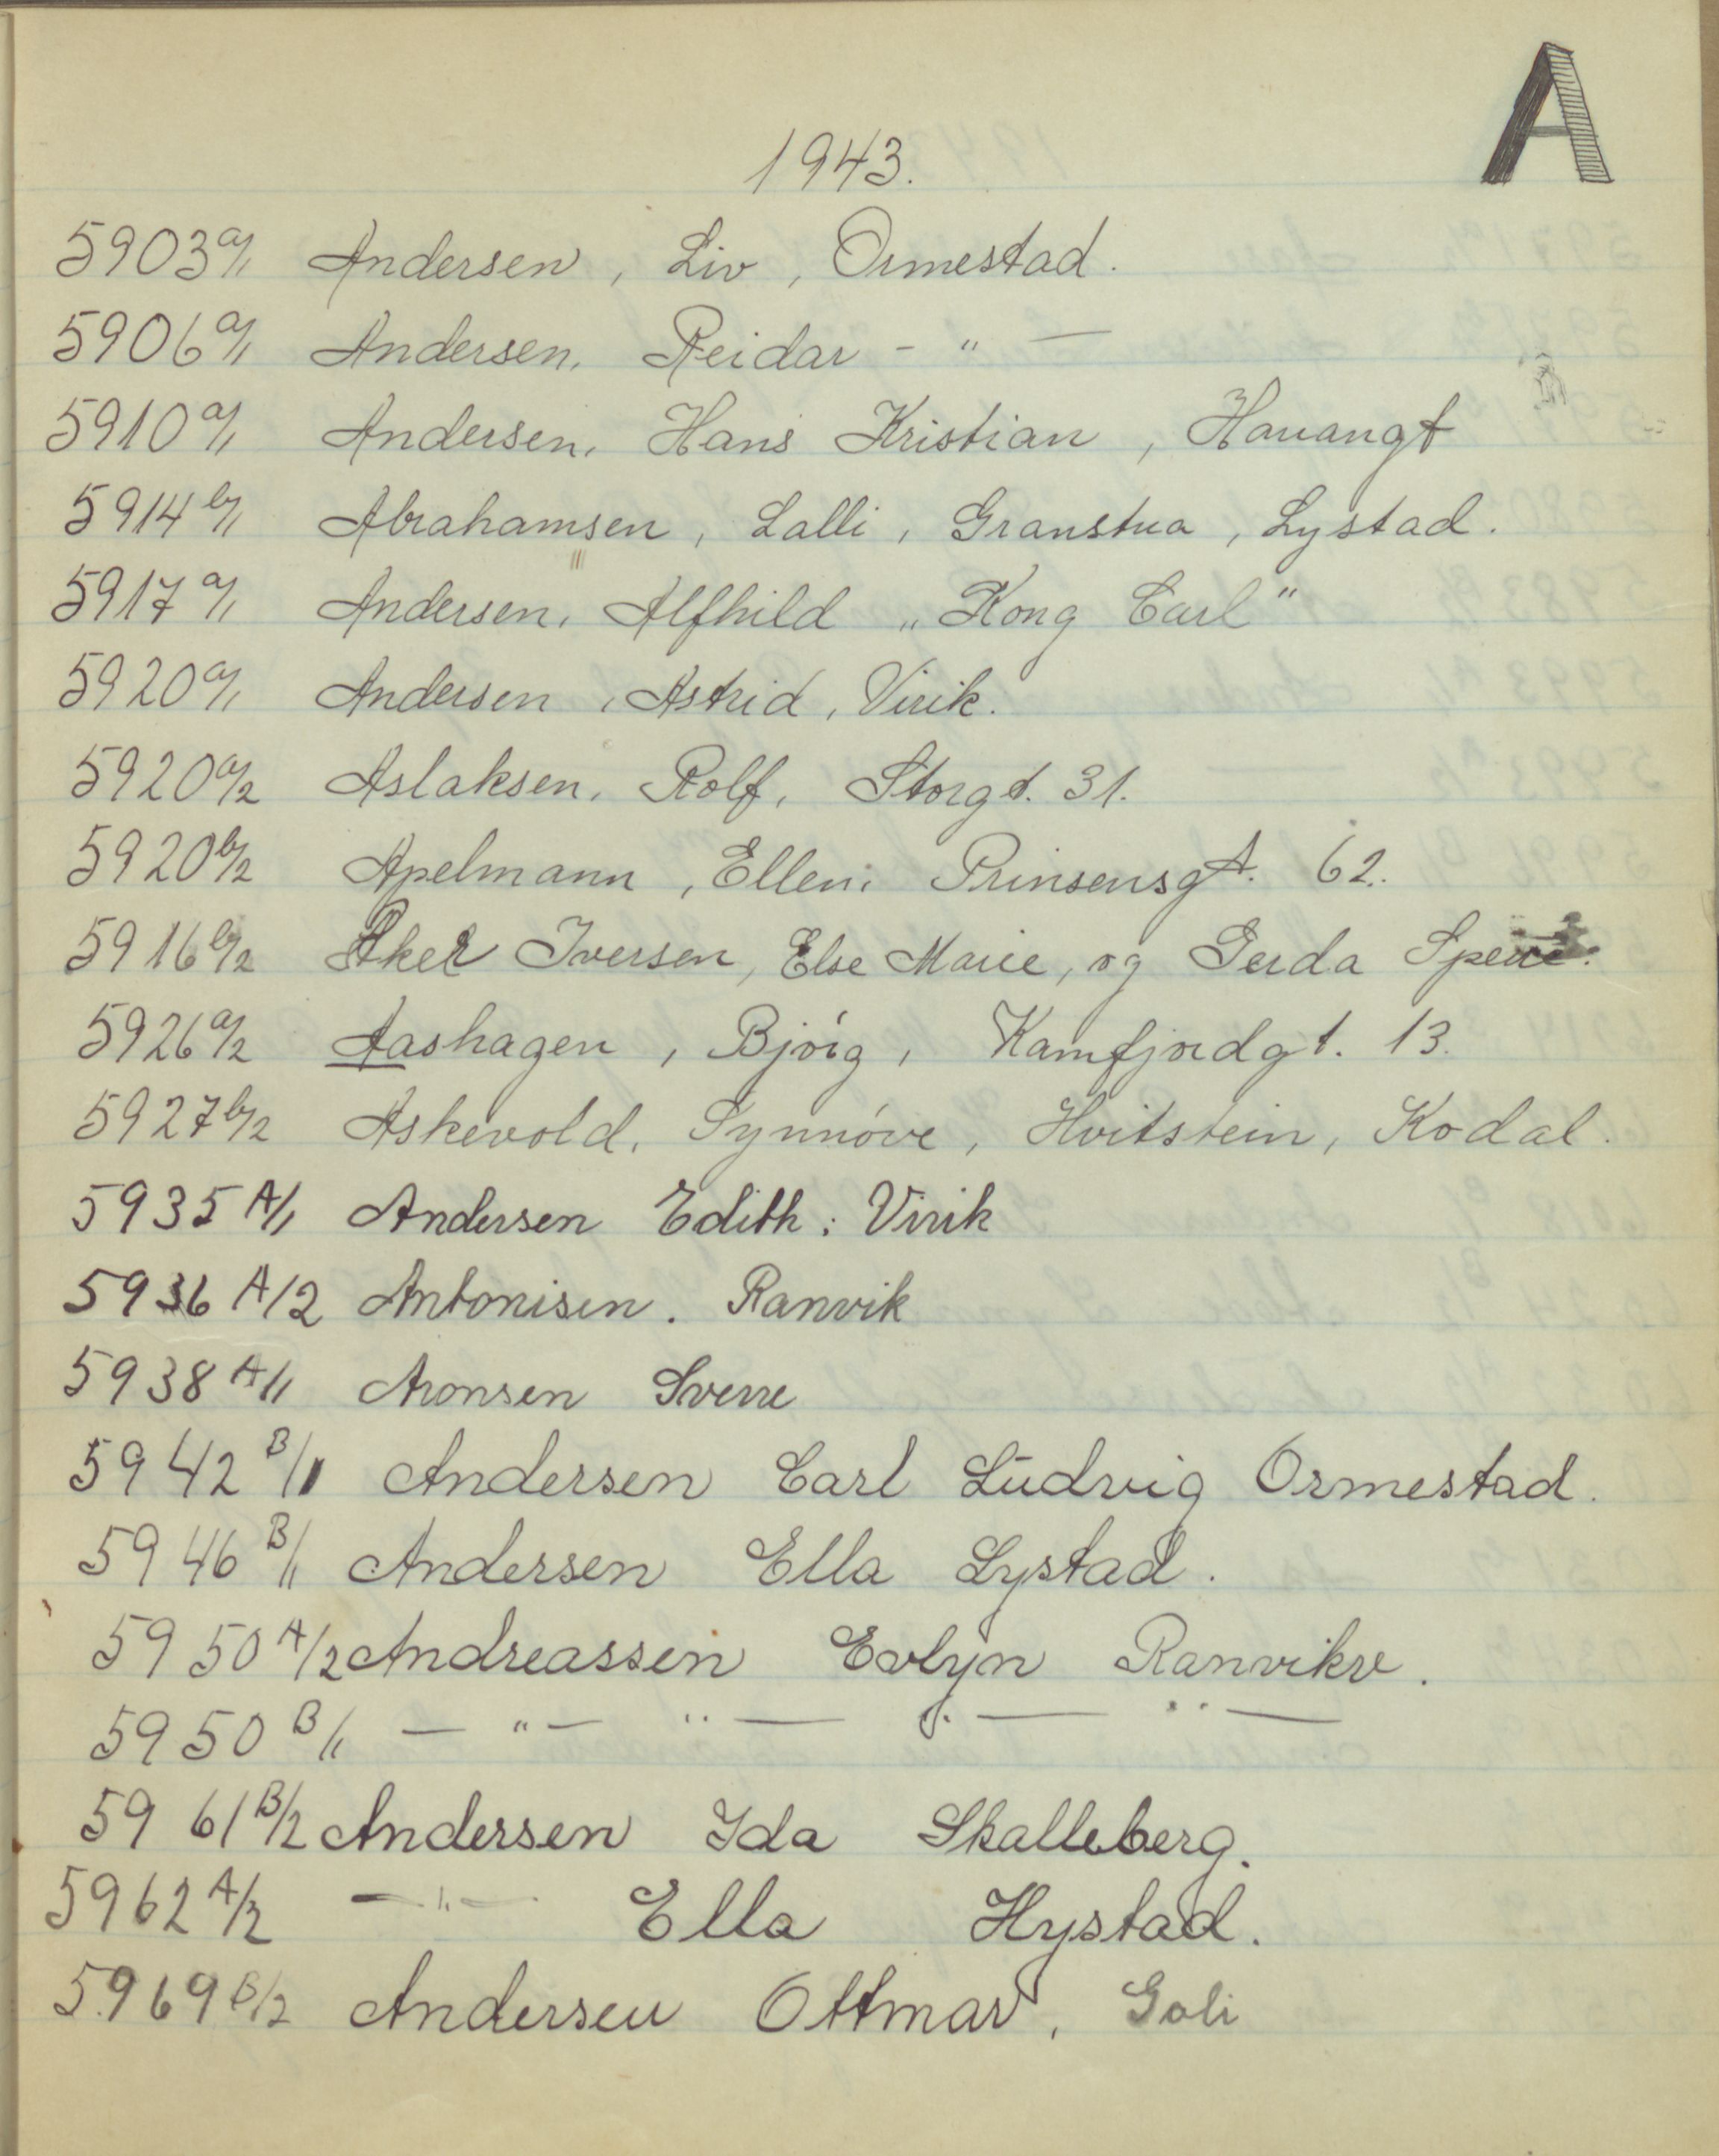 A
1943.
5903 a/1 Andersen, Liv, Ormestad.
5906 a/1 Andersen, Reidar - " —
5910 a/1 Andersen, Hans Kristian, Hauangt
5914 b/1 Abrahamsen, Lalli, Granstua, Lystad.
5917 a/1 Andersen, Alfhild „Kong Carl"
5920 a/1 Andersen, Astrid, Virik.
5920 a/2 Aslaksen, Rolf, Storgt. 31.
5920 b/2 Apelmann, Ellen, Prinsensgt. 62.
5916 b/2 Aker Iversen, Else Marie, og Gerda
5926 a/2 Aashagen, Bjórg, Kamfjordgt. 13.
5927 b/2 Askevold, Synnóve, Hvitstein, Kodal.
5935 A/1 Andersen Edith: Virik
5936 A/2 Antonisen. Ranvik
5938 A/1 Aronsen Sverre
5942 B/1 Andersen Carl Ludvig Ormestad.
5946 B/1 Andersen Ella Lystad.
5950 A/2 Andreassen Evlyn Ranvikv.
5950 B/1 — " — " — — " —
5961 B/2 Andersen Ida Skalleberg.
5962 A/2 — " — Ella Hystad.
5969 B/2 Andersen Ottmar, Goli